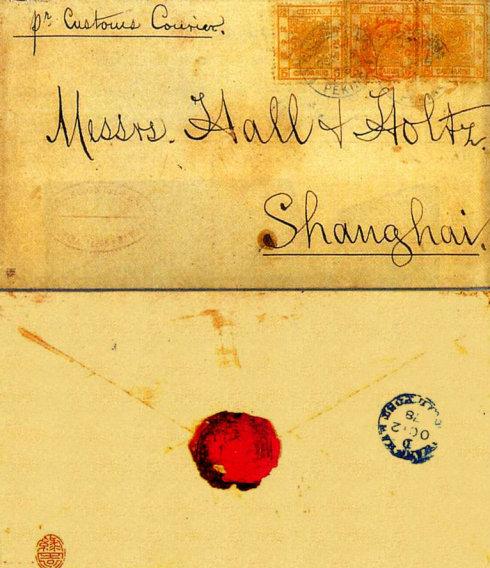 pr Customs Courier.
CHINA CHINA CHINA
PEKIN
Messrs. Hall & Holtz.
Shanghai.
OC 12
78